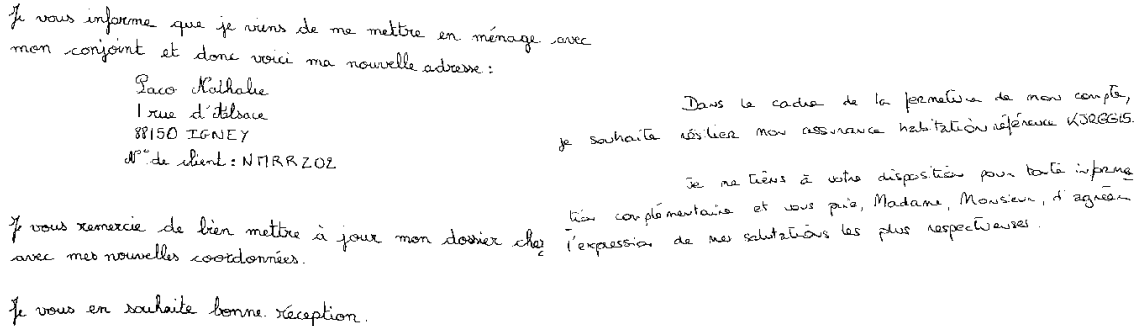 Je vous informe que je viens de me mettre en ménage avec
mon conjoint et donc voici ma nouvelle adresse :
Paco Nathalie
1 rue d'Alsace
88150 IGNEY
N° de client : NMRRZ02
Je vous remercie de bien mettre à jour mon dossier chez
avec mes nouvelles coordonnées.
Je vous en souhaite bonne réception.
Dans le cadre de la fermeture de mon compte,
je souhaite résilier mon assurance habitation référence KJRGG15.
Je me tiens à votre disposition pour toute informa
tion complémentaire et vous prie, Madame, Monsieur, d'agréer
l'expression de mes salutations les plus respectueuses.